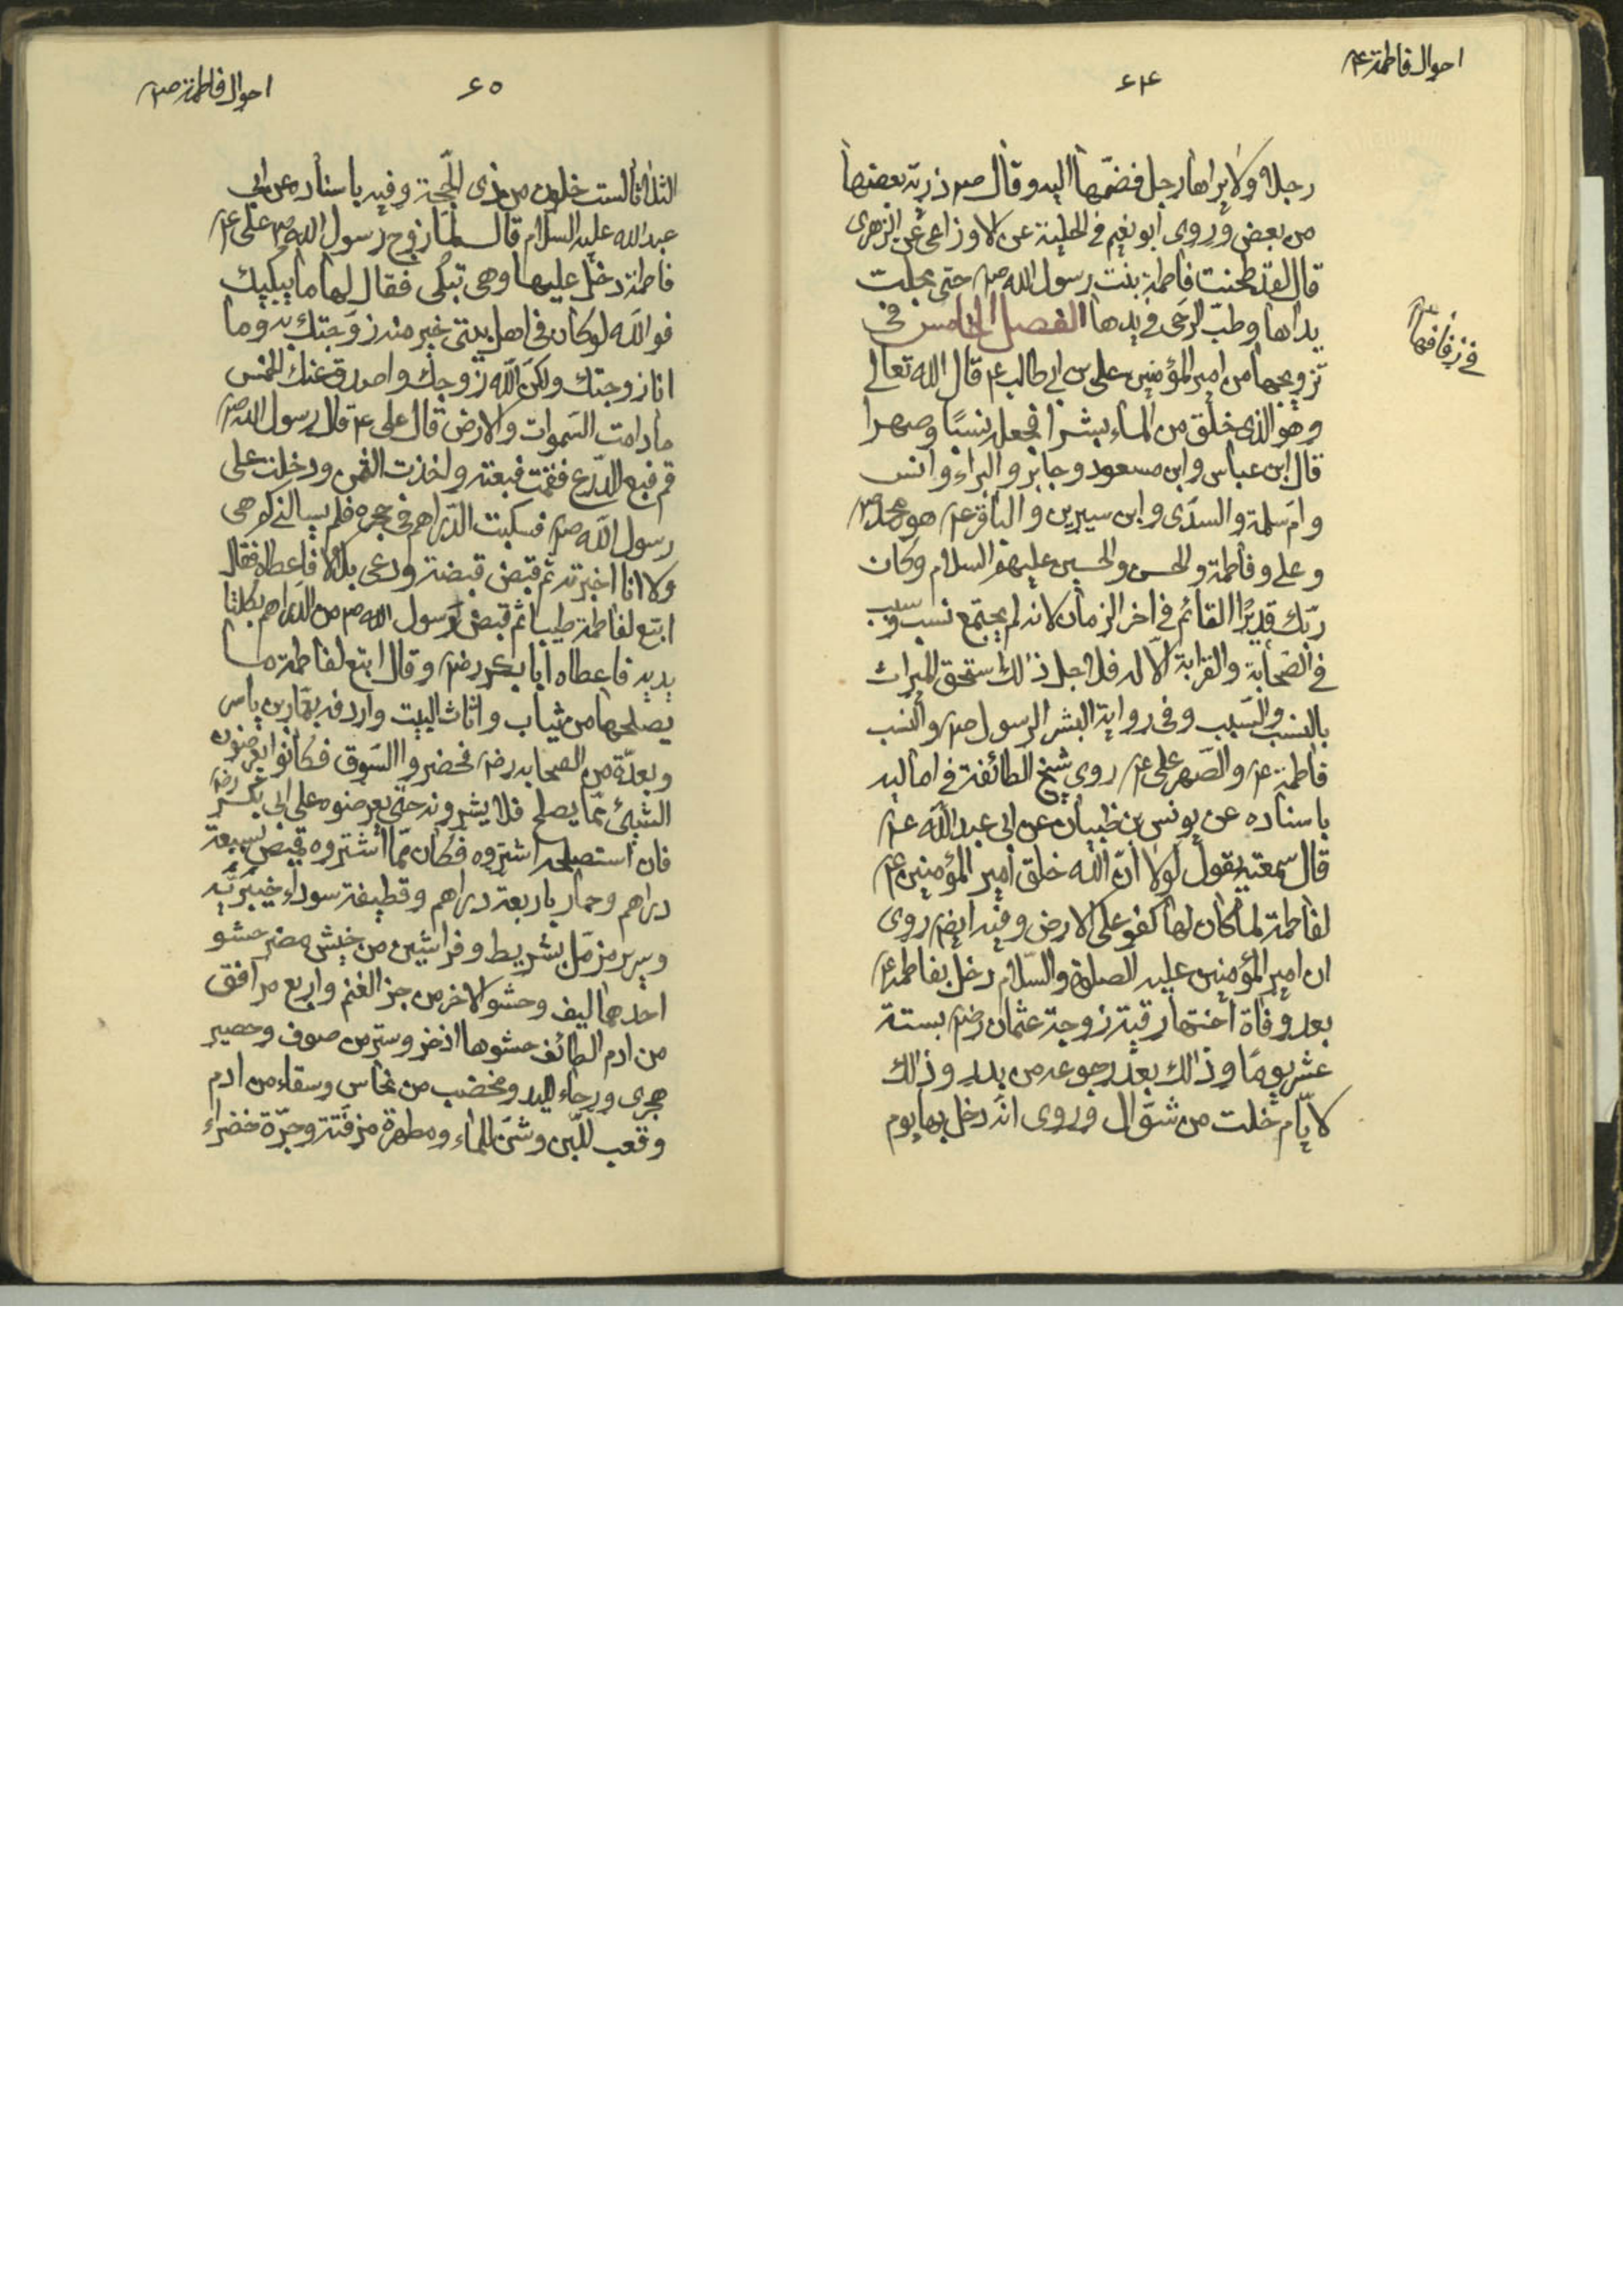 احوال فاطمة ع
۶۴
رجلا ولا يراها رجل فضمّها اليه وقال ص ذرية بعضها
من بعض وروى ابو نعيم فى الحلية عن الاوزاعى عن الزهرى
قال لقد طحنت فاطمة بنت رسول الله ص حتى مجلت
يداها وطبّ الرحى فى يدها الفصل الخامس فى
تزويجها من امير المؤمنين على بن ابى طالب ع قال الله تعالى
وهو الذى خلق من الماء بشرا فجعله نسبًا وصهرا
قال ابن عباس وابن مسعود وجابر والبراء وانس
وامّ سلمة والسدّى وابن سيرين والباقر ع هو محمد ص
وعلى وفاطمة والحسن والحسين عليهم السلام وكان
ربّك قديرًا القائم فى اخر الزمان لانه لم يجتمع نسب وسبب
فى الصّحابة والقرابة الّا له فلاجل ذالك استحق الميراث
بالنسب والسّبب وفى رواية البشر الرسول ص والنسب
فاطمة ع والصّهر على ع روى شيخ الطائفة فى اماليه
باسناده عن يونس بن ظبيان عن ابى عبد الله ع
قال سمعته يقول لولا انّ الله خلق امير المؤمنين ع
لفاطمة لما كان لها كفو على الارض وفيه ايضا روى
ان امير المؤمنين عليه الصلوة والسّلام دخل بفاطمة ع
بعد وفاة اختها رقية زوجة عثمان رض بستة
عشر يومًا وذالك بعد رجوعه من بدر وذالك
لايّام خلت من شوّال وروى انّه دخل بها يوم
فى زفافها ع
احوال فاطمة ص
۶۵
الثلاثا لست خلون من ذى الحجة وفيه باسناده عن ابى
عبد الله عليه السلام قال لمّا زوج رسول الله ص على ع
فاطمة دخل عليها وهى تبكى فقال لها ما يبكيك
فوالله لو كان فى اهل بيتى خير منه زوّجتك به وما
انا زوجتك ولكنّ الله زوجك واصدق عنك الخمس
ما دامت السّموات والارض قال على ع قال رسول الله ص
قم فبع الدّرع فقمت فبعته واخذت الثمن ودخلت على
رسول الله ص فسكبت الدّراهم فى حجره فلم يسالنى كم هى
ولا انا اخبرته ثم قبض قبضة ودعى بلالا فاعطاه فقال
ابتع لفاطمة طيبا ثم قبض رسول الله ص من الدّراهم بكلتا
يديه فاعطاه ابا بكر رض وقال ابتع لفاطمة ما
يصلحها من ثياب واثاث البيت واردفه بعمّار بن ياسر
وبعدّة من الصحابه رض فحضروا السّوق فكانوا يعرضون
الشيئ ممّا يصلح فلا يشترونه حتى يعرضوه على ابى بكر رض
فان استصلحه اشتروه فكان ممّا اشتروه قميص بسبعة
دراهم وخمار باربعة دراهم وقطيفة سوداء خيبريّة
وسرير مزمّل بشريط وفراشين من خيش مصر حشو
احدهما ليف وحشو الاخر من جز الغنم واربع مرافق
من ادم الطائف حشوها اذخر وستر من صوف وحصير
هجرى ورحاء لليد ومخضب من نحاس وسقاء من ادم
وقعب للّبن وشنّ للماء ومطهرة مزفتة وجرّة خضراء